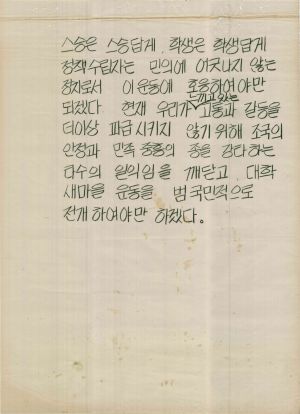 스승은 스승답게, 학생은 학생답게
정책수립자는 민의에 어긋나지 않는
정치로서 이 운동에 호응하여야만
되겠다 현재 우리가 느끼고 있는 고통과 갈등을
더이상 파급시키지 않기 위해 조국의
안정과 민족 중흥의 종을 강타하는
다수의 일의임을 깨닫고, 대학
새마을 운동을 범국민적으로
전개하여야만 하겠다.